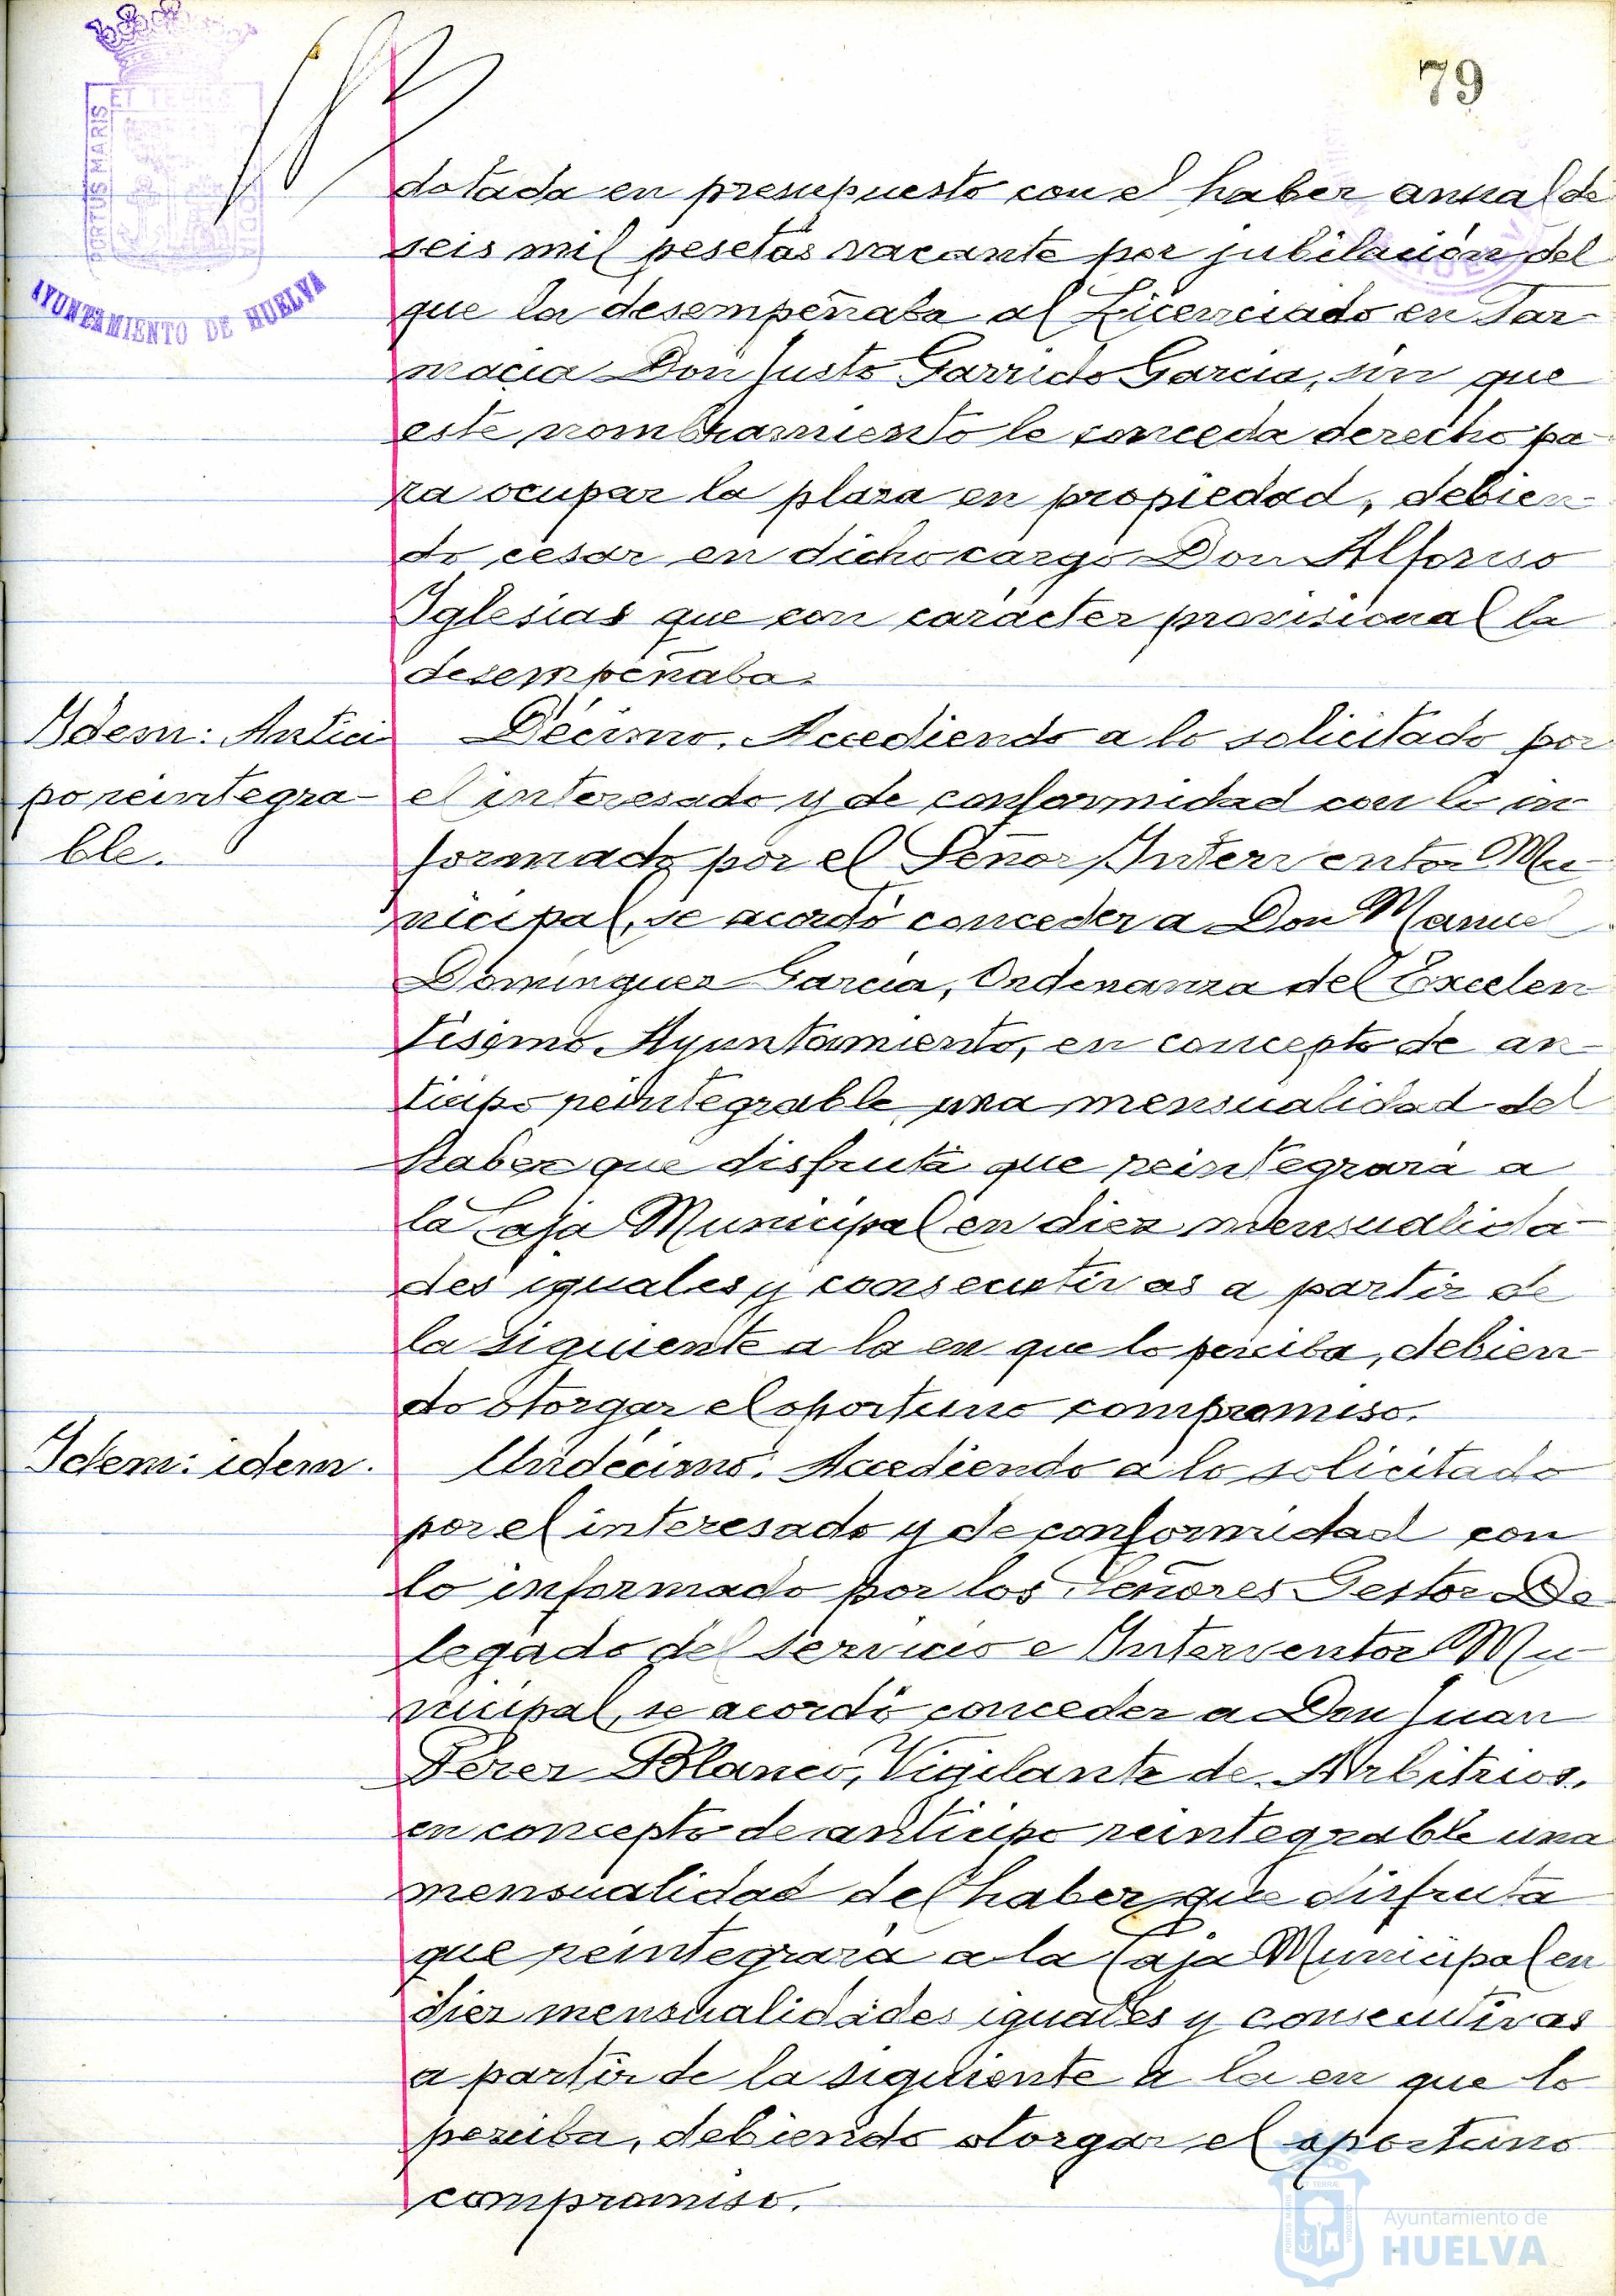 79
PORTUS MARIS
ET TERRÆ
AYUNTAMIENTO DE HUELVA
dotada en presupuesto con el haber anual de
seis mil pesetas vacante por jubilación del
que la desempeñaba al Licenciado en Far-
macia Don Justo Garrido Garcia, sin que
este nombramiento le conceda derecho pa-
ra ocupar la plaza en propiedad, debien-
do cesar en dicho cargo Don Alfonso
Iglesias que con carácter provisional la
desempeñaba.
Idem: Antici
po reintegra-
ble.
Décimo. Accediendo a lo solicitado por
el interesado y de conformidad con lo in
formado por el Señor Interventor Mu-
nicipal, se acordó conceder a Don Manuel
Dominguez Garcia, Ordenanza del Excelen
tisimo Ayuntamiento, en concepto de an-
ticipo reintegrable una mensualidad del
haber que disfruta que reintegrará a
la Caja Municipal en diez mensualida-
des iguales y consecutivas a partir de
la siguiente a la en que lo perciba, debien-
do otorgar el oportuno compromiso.
Idem: idem.
Undécimo. Accediendo a lo solicitado
por el interesado y de conformidad con
lo informado por los Señores Gestor De
legado del servicio e Interventor Mu-
nicipal, se acordó conceder a Don Juan
Perez Blanco, Vigilante de Arbitrios,
en concepto de anticipo reintegrable una
mensualidad del haber que disfruta
que reintegrará a la Caja Municipal en
diez mensualidades iguales y consecutivas
a partir de la siguiente a la en que lo
perciba, debiendo otorgar el oportuno
compromiso.
Ayuntamiento de
HUELVA